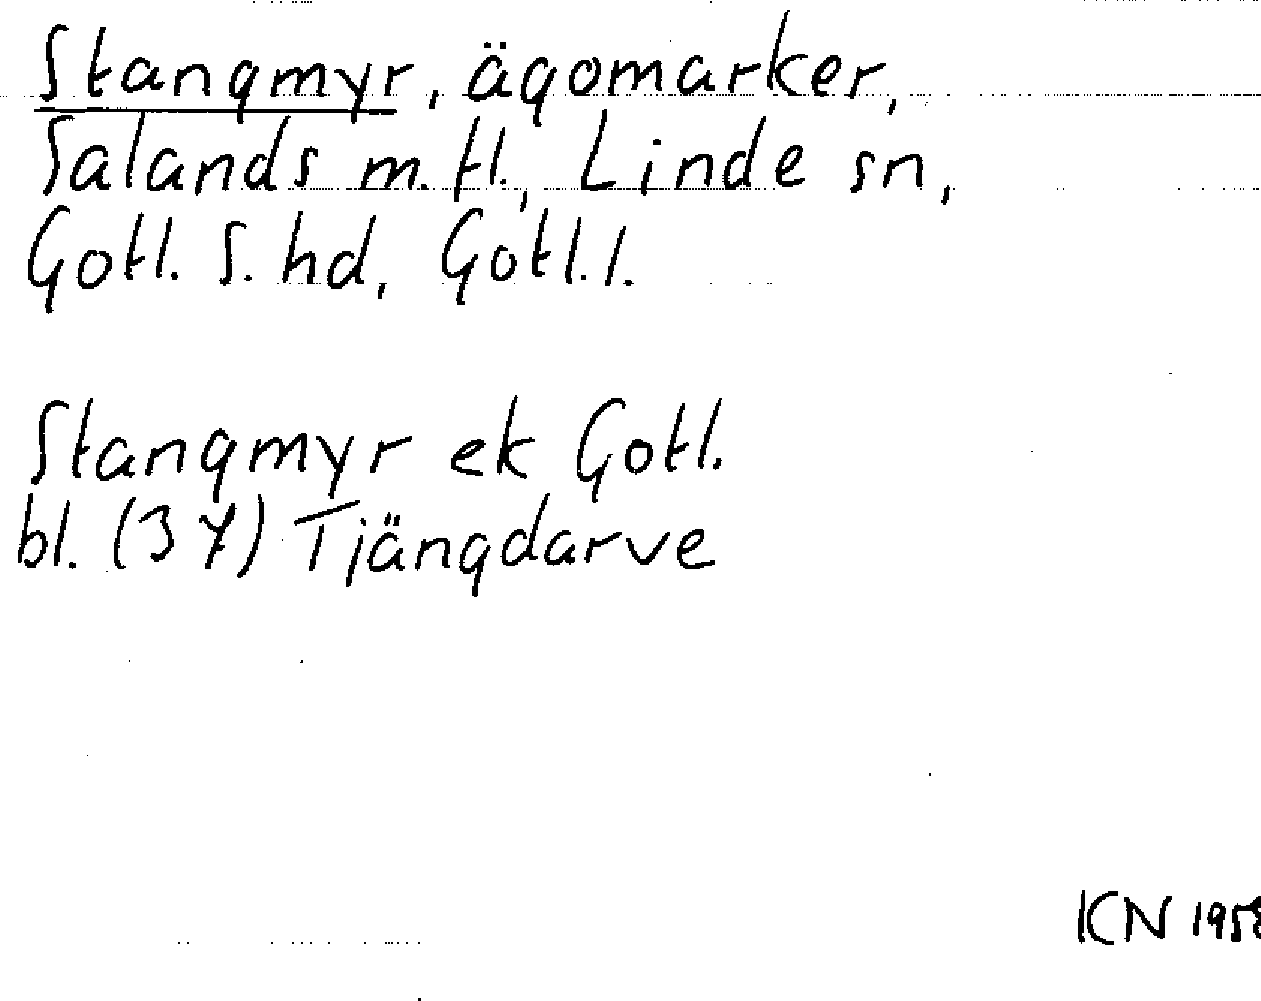 Stangmyr, ägomarker,
Salands m.fl., Linde sn,
Gotl. S. hd, Gotl. l.
Stangmyr ek Gotl.
bl. (37) Tjängdarve
ICN 1958